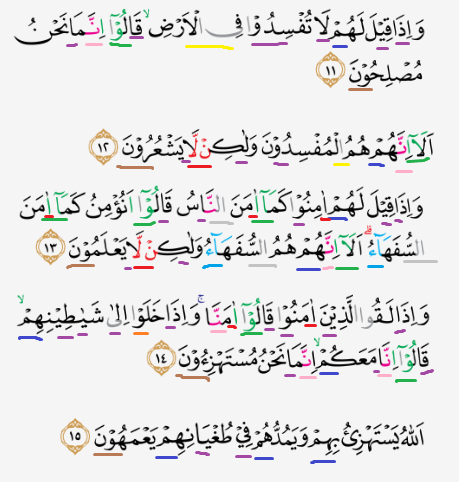 وَاِذَا قِيْلَ لَهُمْ لَا تُفْسِدُوْا فِى الْاَرْضِۙ قَالُوْٓا اِنَّمَا نَحْنُ
مُصْلِحُوْنَ ۝١١
اَلَآ اِنَّهُمْ هُمُ الْمُفْسِدُوْنَ وَلٰكِنْ لَّا يَشْعُرُوْنَ ۝١٢
وَاِذَا قِيْلَ لَهُمْ اٰمِنُوْا كَمَآ اٰمَنَ النَّاسُ قَالُوْٓا اَنُؤْمِنُ كَمَآ اٰمَنَ
السُّفَهَاۤءُۗ اَلَآ اِنَّهُمْ هُمُ السُّفَهَاۤءُ وَلٰكِنْ لَّا يَعْلَمُوْنَ ۝١٣
وَاِذَا لَقُوا الَّذِيْنَ اٰمَنُوْا قَالُوْٓا اٰمَنَّاۚ وَاِذَا خَلَوْا اِلٰى شَيٰطِيْنِهِمْۙ
قَالُوْٓا اِنَّا مَعَكُمْۙ اِنَّمَا نَحْنُ مُسْتَهْزِءُوْنَ ۝١٤
اَللّٰهُ يَسْتَهْزِئُ بِهِمْ وَيَمُدُّهُمْ فِيْ طُغْيَانِهِمْ يَعْمَهُوْنَ ۝١٥